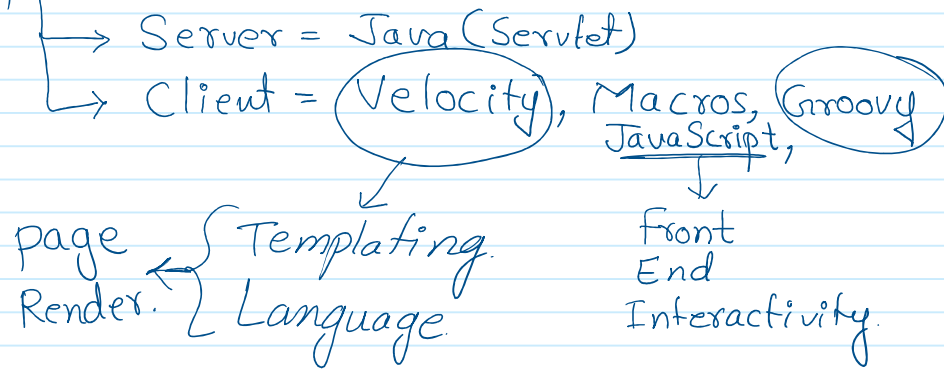 Server = Java (Servlet)
Client = Velocity, Macros, Groovy
JavaScript,
page { Templating.
Render. Language.
Front
End
Interactivity.